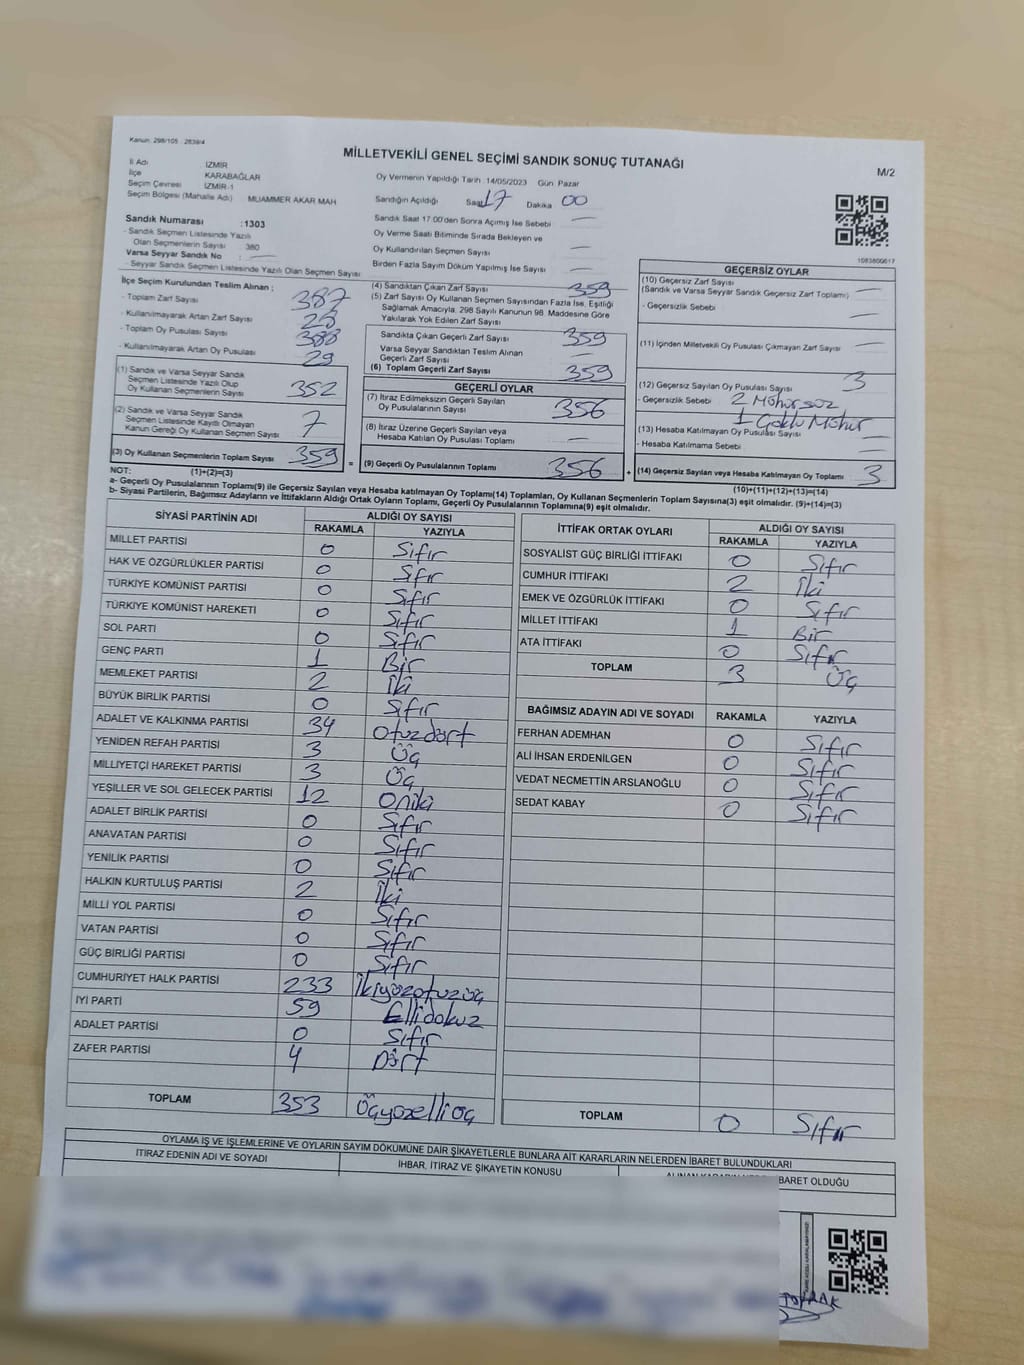 Kanun: 298/105 2839/4
MİLLETVEKİLİ GENEL SEÇİMİ SANDIK SONUÇ TUTANAĞI
M/2
İl Adı İZMİR
İlçe KARABAĞLAR
Seçim Çevresi İZMİR-1
Seçim Bölgesi (Mahalle Adı) MUAMMER AKAR MAH
Sandık Numarası :1303
- Sandık Seçmen Listesinde Yazılı
Olan Seçmenlerin Sayısı : 380
Varsa Seyyar Sandık No : —
- Seyyar Sandık Seçmen Listesinde Yazılı Olan Seçmen Sayısı
Oy Vermenin Yapıldığı Tarih :14/05/2023 Gün Pazar
Sandığın Açıldığı Saat 17 Dakika 00
Sandık Saat 17:00'den Sonra Açımış İse Sebebi —
Oy Verme Saati Bitiminde Sırada Bekleyen ve
Oy Kullandırılan Seçmen Sayısı —
Birden Fazla Sayım Döküm Yapılmış İse Sayısı —
1083800617
İlçe Seçim Kurulundan Teslim Alınan ;
- Toplam Zarf Sayısı 387
- Kullanılmayarak Artan Zarf Sayısı 28
- Toplam Oy Pusulası Sayısı 388
- Kullanılmayarak Artan Oy Pusulası 29
(1) Sandık ve Varsa Seyyar Sandık
Seçmen Listesinde Yazılı Olup
Oy Kullanan Seçmenlerin Sayısı 352
(2) Sandık ve Varsa Seyyar Sandık
Seçmen Listesinde Kayıtlı Olmayan
Kanun Gereği Oy Kullanan Seçmen Sayısı 7
(3) Oy Kullanan Seçmenlerin Toplam Sayısı 359
(4) Sandıktan Çıkan Zarf Sayısı 359
(5) Zarf Sayısı Oy Kullanan Seçmen Sayısından Fazla İse, Eşitliği
Sağlamak Amacıyla, 298 Sayılı Kanunun 98. Maddesine Göre
Yakılarak Yok Edilen Zarf Sayısı —
Sandıkta Çıkan Geçerli Zarf Sayısı 359
Varsa Seyyar Sandıktan Teslim Alınan
Geçerli Zarf Sayısı —
(6) Toplam Geçerli Zarf Sayısı 359
GEÇERLİ OYLAR
(7) İtiraz Edilmeksizin Geçerli Sayılan
Oy Pusulalarının Sayısı 356
(8) İtiraz Üzerine Geçerli Sayılan veya
Hesaba Katılan Oy Pusulası Toplamı —
= (9) Geçerli Oy Pusulalarının Toplamı 356 +
GEÇERSİZ OYLAR
(10) Geçersiz Zarf Sayısı
(Sandık ve Varsa Seyyar Sandık Geçersiz Zarf Toplamı) —
- Geçersizlik Sebebi —
(11) İçinden Milletvekili Oy Pusulası Çıkmayan Zarf Sayısı —
(12) Geçersiz Sayılan Oy Pusulası Sayısı 3
- Geçersizlik Sebebi 2 Mühürsüz
1 Çoklu Mühür
(13) Hesaba Katılmayan Oy Pusulası Sayısı —
- Hesaba Katılmama Sebebi —
(14) Geçersiz Sayılan veya Hesaba Katılmayan Oy Toplamı 3
NOT: (1)+(2)=(3) (10)+(11)+(12)+(13)=(14)
a- Geçerli Oy Pusulalarının Toplamı(9) ile Geçersiz Sayılan veya Hesaba katılmayan Oy Toplamı(14) Toplamları, Oy Kullanan Seçmenlerin Toplam Sayısına(3) eşit olmalıdır. (9)+(14)=(3)
b- Siyasi Partilerin, Bağımsız Adayların ve İttifakların Aldığı Ortak Oyların Toplamı, Geçerli Oy Pusulalarının Toplamına(9) eşit olmalıdır.
SİYASİ PARTİNİN ADI ALDIĞI OY SAYISI
RAKAMLA YAZIYLA
MİLLET PARTİSİ 0 Sıfır
HAK VE ÖZGÜRLÜKLER PARTİSİ 0 Sfır
TÜRKİYE KOMÜNİST PARTİSİ 0 Sıfır
TÜRKİYE KOMÜNİST HAREKETİ 0 Sıfır
SOL PARTİ 0 Sıfır
GENÇ PARTİ 1 Bir
MEMLEKET PARTİSİ 2 İki
BÜYÜK BİRLİK PARTİSİ 0 Sıfır
ADALET VE KALKINMA PARTİSİ 34 Otuzdört
YENİDEN REFAH PARTİSİ 3 Üç
MİLLİYETÇİ HAREKET PARTİSİ 3 Üç
YEŞİLLER VE SOL GELECEK PARTİSİ 12 Oniki
ADALET BİRLİK PARTİSİ 0 Sıfır
ANAVATAN PARTİSİ 0 Sıfır
YENİLİK PARTİSİ 0 Sıfır
HALKIN KURTULUŞ PARTİSİ 2 İki
MİLLİ YOL PARTİSİ 0 Sıfır
VATAN PARTİSİ 0 Sıfır
GÜÇ BİRLİĞİ PARTİSİ 0 Sıfır
CUMHURİYET HALK PARTİSİ 233 İkiyüzotuzüç
İYİ PARTİ 59 Ellidokuz
ADALET PARTİSİ 0 Sıfır
ZAFER PARTİSİ 4 Dört
TOPLAM 353 Üçyüzelliüç
İTTİFAK ORTAK OYLARI ALDIĞI OY SAYISI
RAKAMLA YAZIYLA
SOSYALİST GÜÇ BİRLİĞİ İTTİFAKI 0 Sıfır
CUMHUR İTTİFAKI 2 İki
EMEK VE ÖZGÜRLÜK İTTİFAKI 0 Sıfır
MİLLET İTTİFAKI 1 Bir
ATA İTTİFAKI 0 Sıfır
TOPLAM 3 Üç
BAĞIMSIZ ADAYIN ADI VE SOYADI RAKAMLA YAZIYLA
FERHAN ADEMHAN 0 Sıfır
ALİ İHSAN ERDENİLGEN 0 Sıfır
VEDAT NECMETTİN ARSLANOĞLU 0 Sıfır
SEDAT KABAY 0 Sıfır
TOPLAM 0 Sıfır
OYLAMA İŞ VE İŞLEMLERİNE VE OYLARIN SAYIM DÖKÜMÜNE DAİR ŞİKAYETLERLE BUNLARA AİT KARARLARIN NELERDEN İBARET BULUNDUKLARI
İTİRAZ EDENİN ADI VE SOYADI İHBAR, İTİRAZ VE ŞİKAYETİN KONUSU BARET OLDUĞU